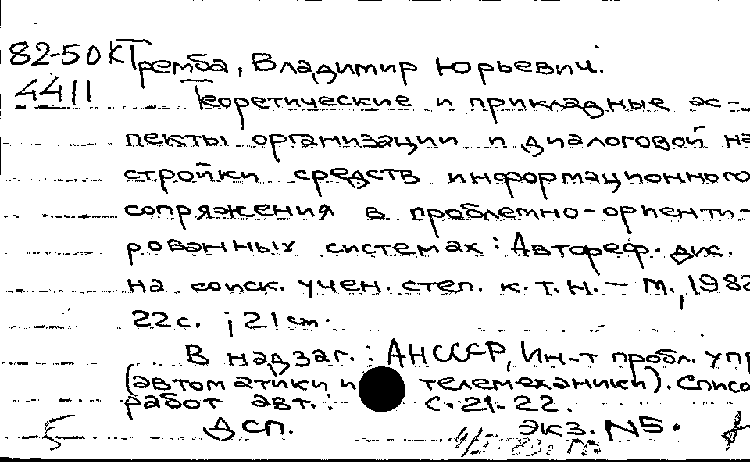 82-50КТ
4411
Тремба, Владимир Юрьевич.
Теоретические и прикладные ас-
пекты организации и диалоговой на
стройки средств информационного
сопряжения в проблемно-ориенти-
рованных системах: Автореф. дис.
на соиск. учен. степ. к.т.н. – М., 1982
22 с. ; 21 см.
В надзаг.: АН СССР, Ин-т пробл. упр
(автоматики и телемеханики). Списо
работ авт.: с. 21-22.
Дсп. экз. N5.